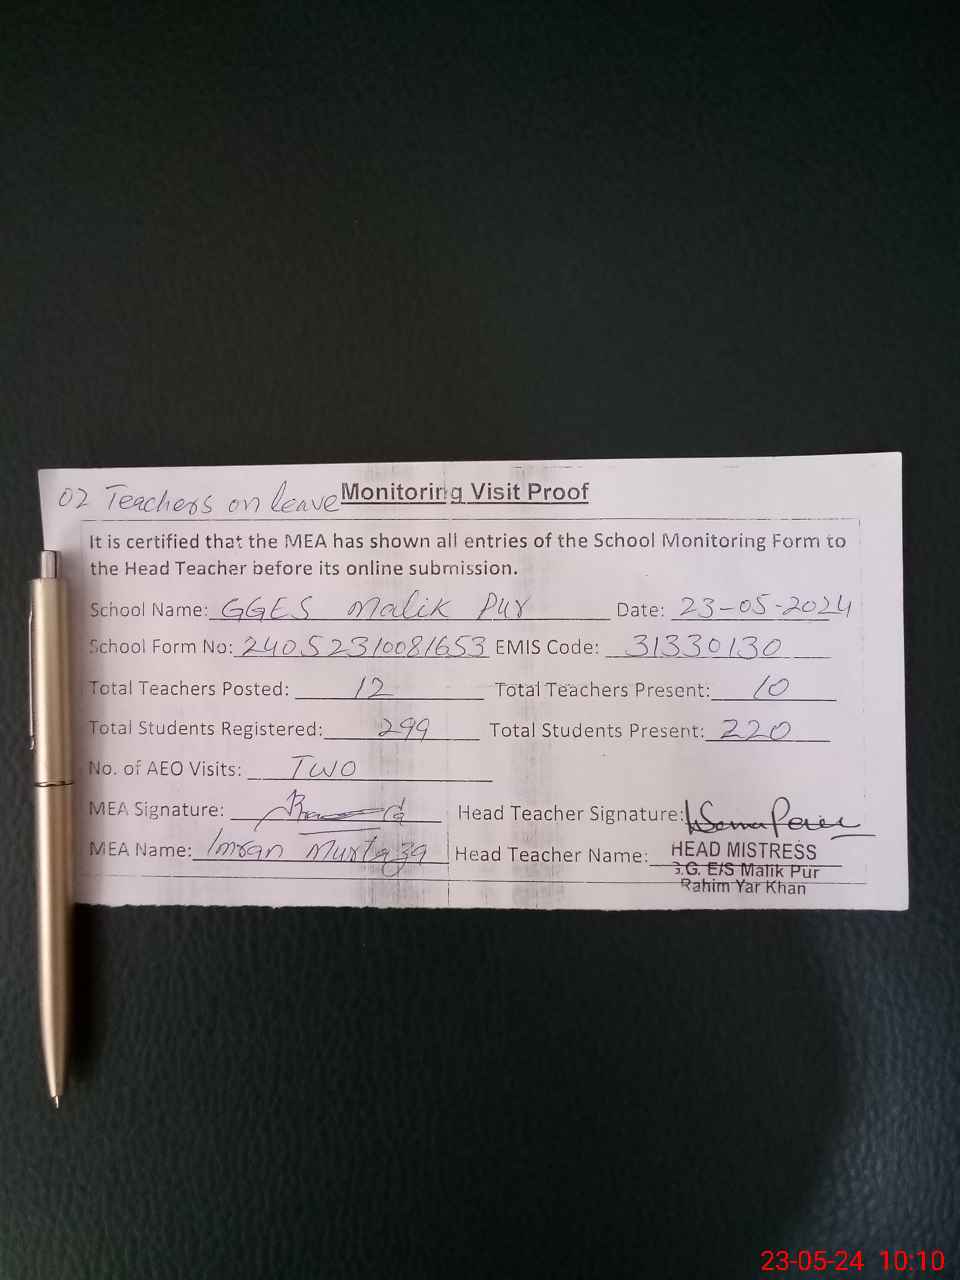 02 Teachers on leave Monitoring Visit Proof
It is certified that the MEA has shown all entries of the School Monitoring Form to
the Head Teacher before its online submission.
School Name: GGES Malik Pur Date: 23-05-2024
School Form No: 24052310081653 EMIS Code: 31330130
Total Teachers Posted: 12 Total Teachers Present: 10
Total Students Registered: 299 Total Students Present: 220
No. of AEO Visits: Two
MEA Signature: Head Teacher Signature:
MEA Name: Imran Murtaza Head Teacher Name: HEAD MISTRESS
G.G. E/S Malik Pur
Rahim Yar Khan
23-05-24 10:10